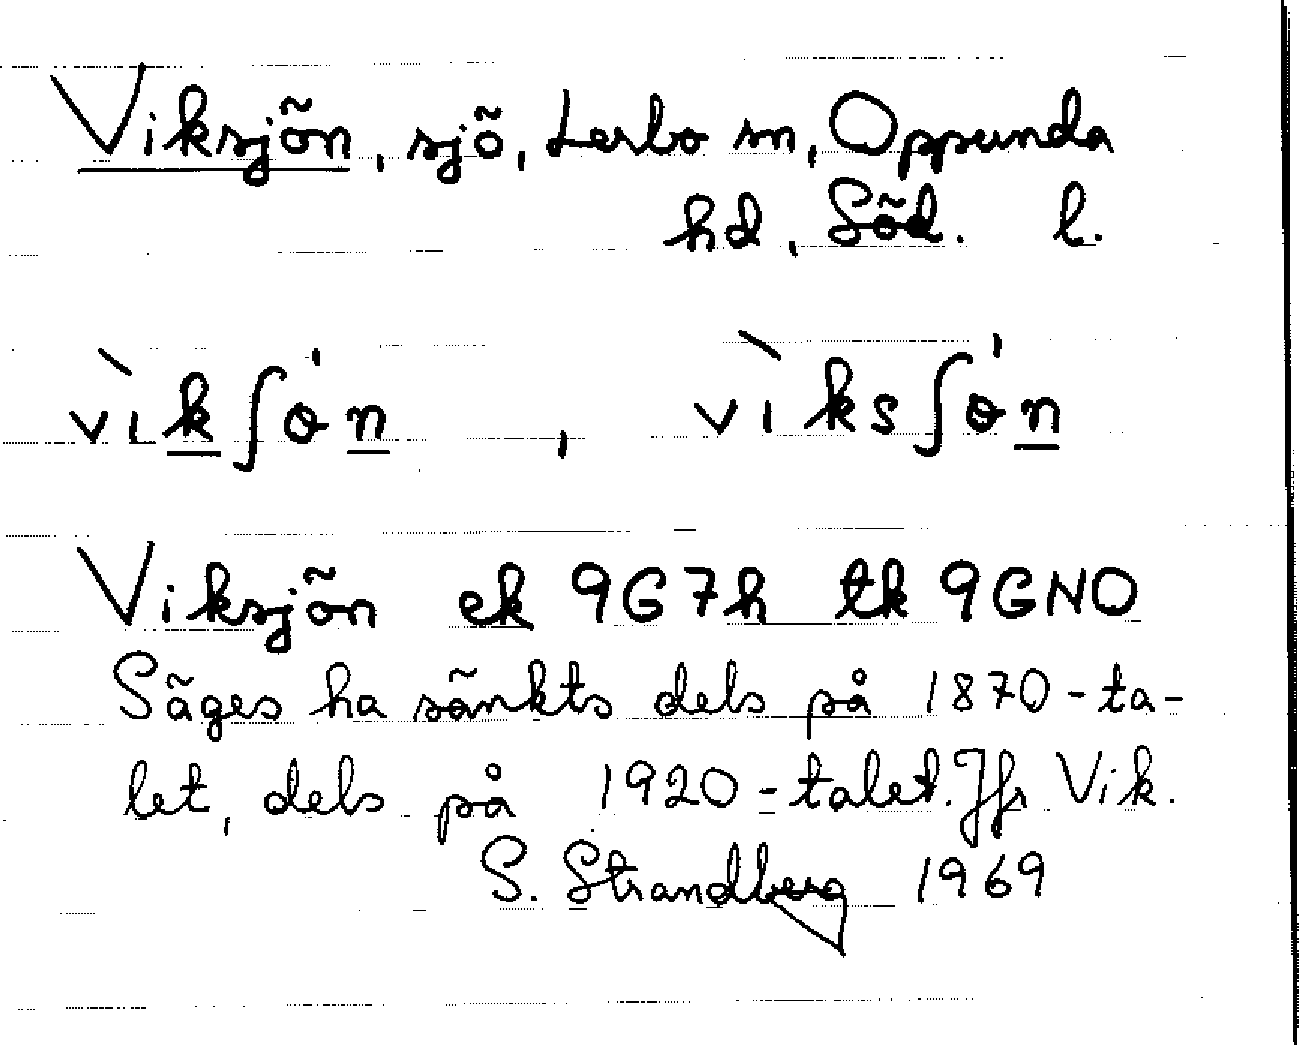 Viksjön, sjö, Lerbo sn, Oppunda
hd, Söd. l.
vìkʃɵ́n, vìksʃɵ́n
Viksjön ek 9G7h tk 9GNO
Säges ha sänkts dels på 1870-ta-
let, dels på 1920-talet. Jfr Vik.
S. Strandberg 1969